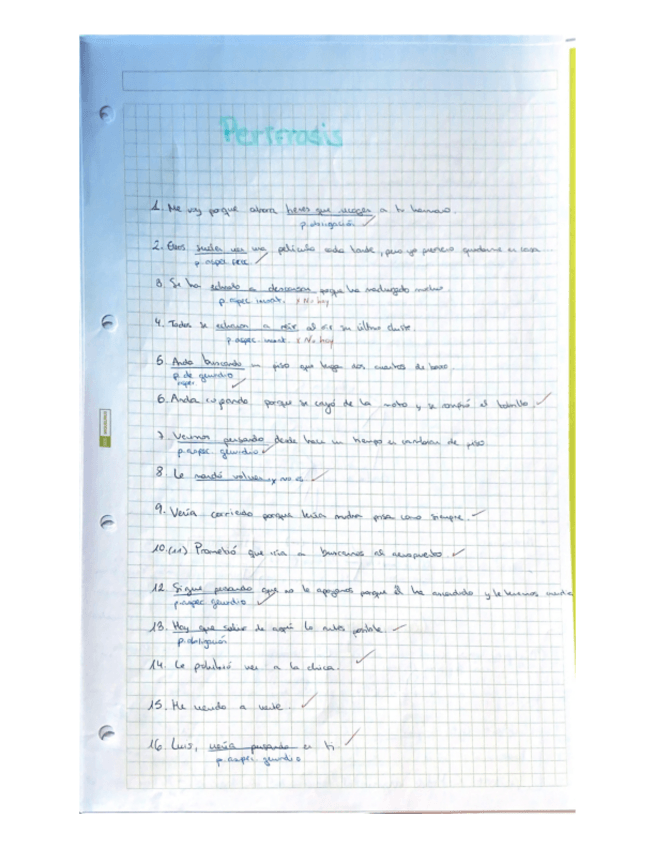 Perífrasis
1. Me voy porque ahora tienes que recoger a tu hermano.
p. obligación ✓
2. Ellos suelen ver una película esta tarde, pero yo prefiero quedarme en casa
p. aspec. ✓
3. Se ha echado a descansar porque ha madrugado mucho.
p. aspec. incoat. x No hay
4. Todos se echaron a reír al oír su último chiste
p aspec. incoat. x No hay
5. Anda buscando un piso que tenga dos cuartos de baño.
p. de gerundio
aspec ✓
6. Anda cojeando porque se cayó de la moto y se rompió el tobillo. ✓
7. Vamos pensando desde hace un tiempo en cambiar de piso
p. aspec gerundio ✓
8. Le mandó volver y no ✓
9. Venía corriendo porque tenía mucha prisa como siempre. ✓
10.(11) Prometió que iría a buscarnos al aeropuerto. ✓
12. Sigue pensando que no le apoyamos porque él ha
p. aspec gerundio ✓
13. Hay que salir de aquí lo antes posible ✓
p. obligación
14. Le prohibió ver a la chica. ✓
15. He venido a verte. ✓
16. Luis, venía pensando en ti ✓
p. aspec. gerundio